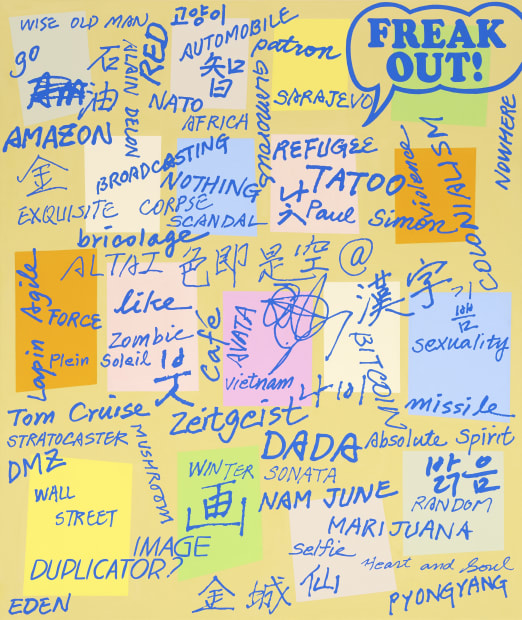 WISE OLD MAN
고양이
FREAK
OUT!
go
石
ALAIN DELON
RED
AUTOMOBILE
patron
油
NATO
GLAMOROUS
SARAJEVO
NOWHERE
AFRICA
AMAZON
BROADCASTING
REFUGEE
violence
COLONIALISM
金
NOTHING
TATOO
EXQUISITE CORPSE
SCANDAL
Paul
Simon
bricolage
ALTAI
色即是空
@
漢字
Agile
Lapin
FORCE
like
Zombie
Café
AVATA
BITCOIN
sexuality
Plein
Soleil
Vietnam
missile
Tom Cruise
Zeitgeist
STRATOCASTER
MUSHROOM
DADA
Absolute Spirit
DMZ
WINTER
SONATA
WALL
STREET
画
NAM JUNE
RANDOM
MARIJUANA
IMAGE
selfie
DUPLICATOR?
Heart and Soul
EDEN
金城
仙
PYONGYANG